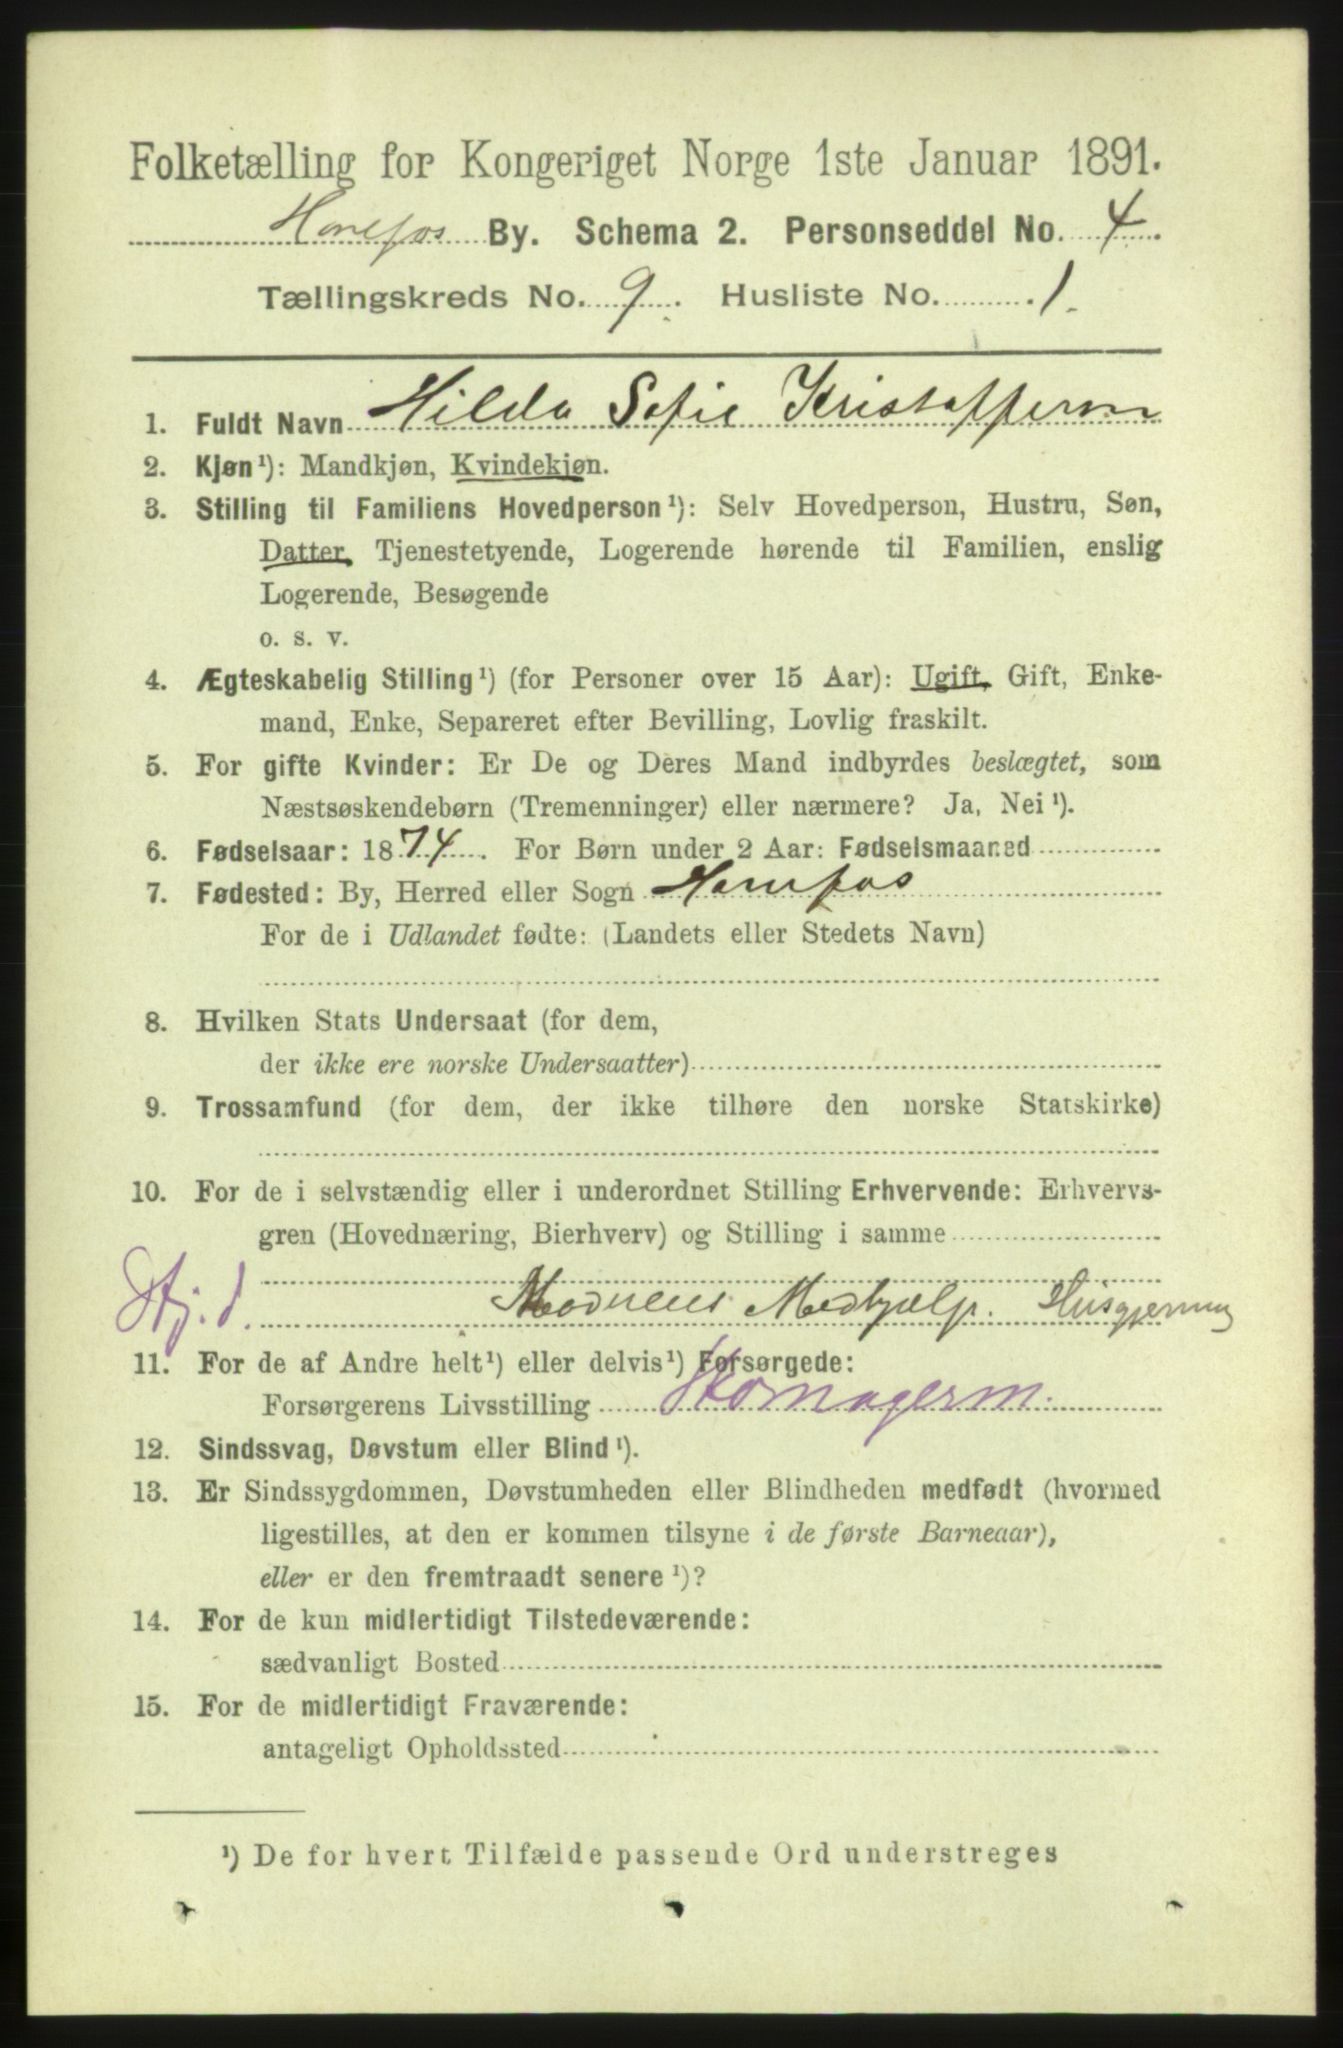 Folketælling for Kongeriget Norge 1ste Januar 1891.
Hønefos By. Schema 2. Personseddel No. 4.
Tællingskreds No. 9. Husliste No. 1.
1. Fuldt Navn Hilda Sofie Kristoffersen
2. Kjøn¹): Mandkjøn, Kvindekjøn.
3. Stilling til Familiens Hovedperson¹): Selv Hovedperson, Hustru, Søn,
Datter, Tjenestetyende, Logerende hørende til Familien, enslig
Logerende, Besøgende
o. s. v.
4. Ægteskabelig Stilling¹) (for Personer over 15 Aar): Ugift, Gift, Enke-
mand, Enke, Separeret efter Bevilling, Lovlig fraskilt.
5. For gifte Kvinder: Er De og Deres Mand indbyrdes beslægtet, som
Næstsøskendebørn (Tremenninger) eller nærmere? Ja, Nei¹).
6. Fødselsaar: 1874. For Børn under 2 Aar: Fødselsmaaned
7. Fødested: By, Herred eller Sogn Hønefos
For de i Udlandet fødte: (Landets eller Stedets Navn)
8. Hvilken Stats Undersaat (for dem,
der ikke ere norske Undersaatter)
9. Trossamfund (for dem, der ikke tilhøre den norske Statskirke)
10. For de i selvstændig eller i underordnet Stilling Erhvervende: Erhvervs-
gren (Hovednæring, Bierhverv) og Stilling i samme
Hj. d. Moderens Medhjælp. Husgjerning
11. For de af Andre helt¹) eller delvis¹) Forsørgede:
Forsørgerens Livsstilling Skomagerm.
12. Sindssvag, Døvstum eller Blind¹).
13. Er Sindssygdommen, Døvstumheden eller Blindheden medfødt (hvormed
ligestilles, at den er kommen tilsyne i de første Barneaar),
eller er den fremtraadt senere¹)?
14. For de kun midlertidigt Tilstedeværende:
sædvanligt Bosted
15. For de midlertidigt Fraværende:
antageligt Opholdssted
¹) De for hvert Tilfælde passende Ord understreges